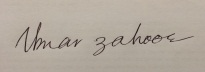 Umar zahoor